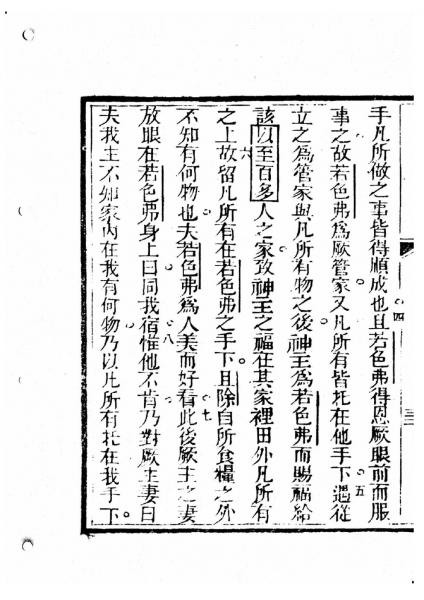 手凡所做之事皆得順成也。四且若色弗得恩厥眼前而服
事之故若色弗爲厥管家又凡所有皆托在他手下。五遇從
立之爲管家與凡所有物之後。神王爲若色弗而賜福給
該以至百多人之家。致神王之福在其家裡田外凡所有
之上。六故留凡所有在若色弗之手下。且除自所食糧之外
不知有何物也。夫若色弗爲人美而好看。七此後厥主之妻
放眼在若色弗身上曰。同我宿。八惟他不肯。乃對厥主妻曰
夫我主不知家內在我有何物。乃以凡所有托在我手下。